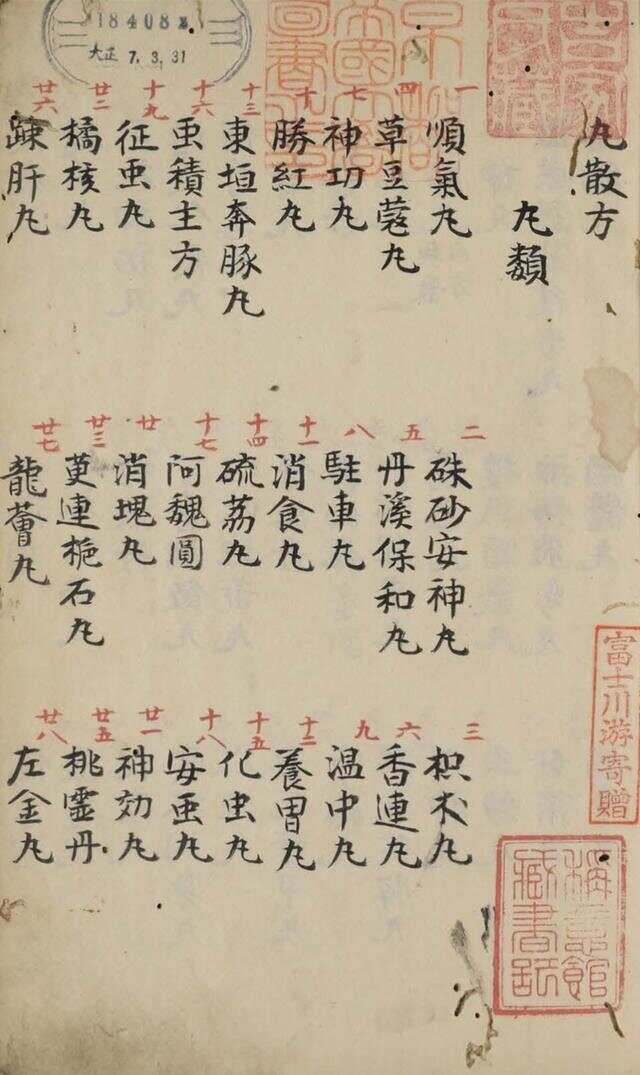 18408
大正 7.3.31
丸散方
丸類
一 順氣丸
二 硃砂安神丸
三 枳朮丸
四 草豆蔲丸
五 丹溪保和丸
六 香連丸
七 神功丸
八 駐車丸
九 温中丸
十 勝紅丸
十一 消食丸
十二 養胃丸
十三 東垣奔豚丸
十四 硫荔丸
十五 化虫丸
十六 䖝積主方
十七 阿魏圓
十八 安䖝丸
十九 征䖝丸
廿 消塊丸
廿一 神効丸
廿二 橘核丸
廿三 茰連梔石丸
廿五 桃霊丹
廿六 踈肝丸
廿七 龍薈丸
廿八 左金丸
富士川游寄贈
稱意館
藏書記